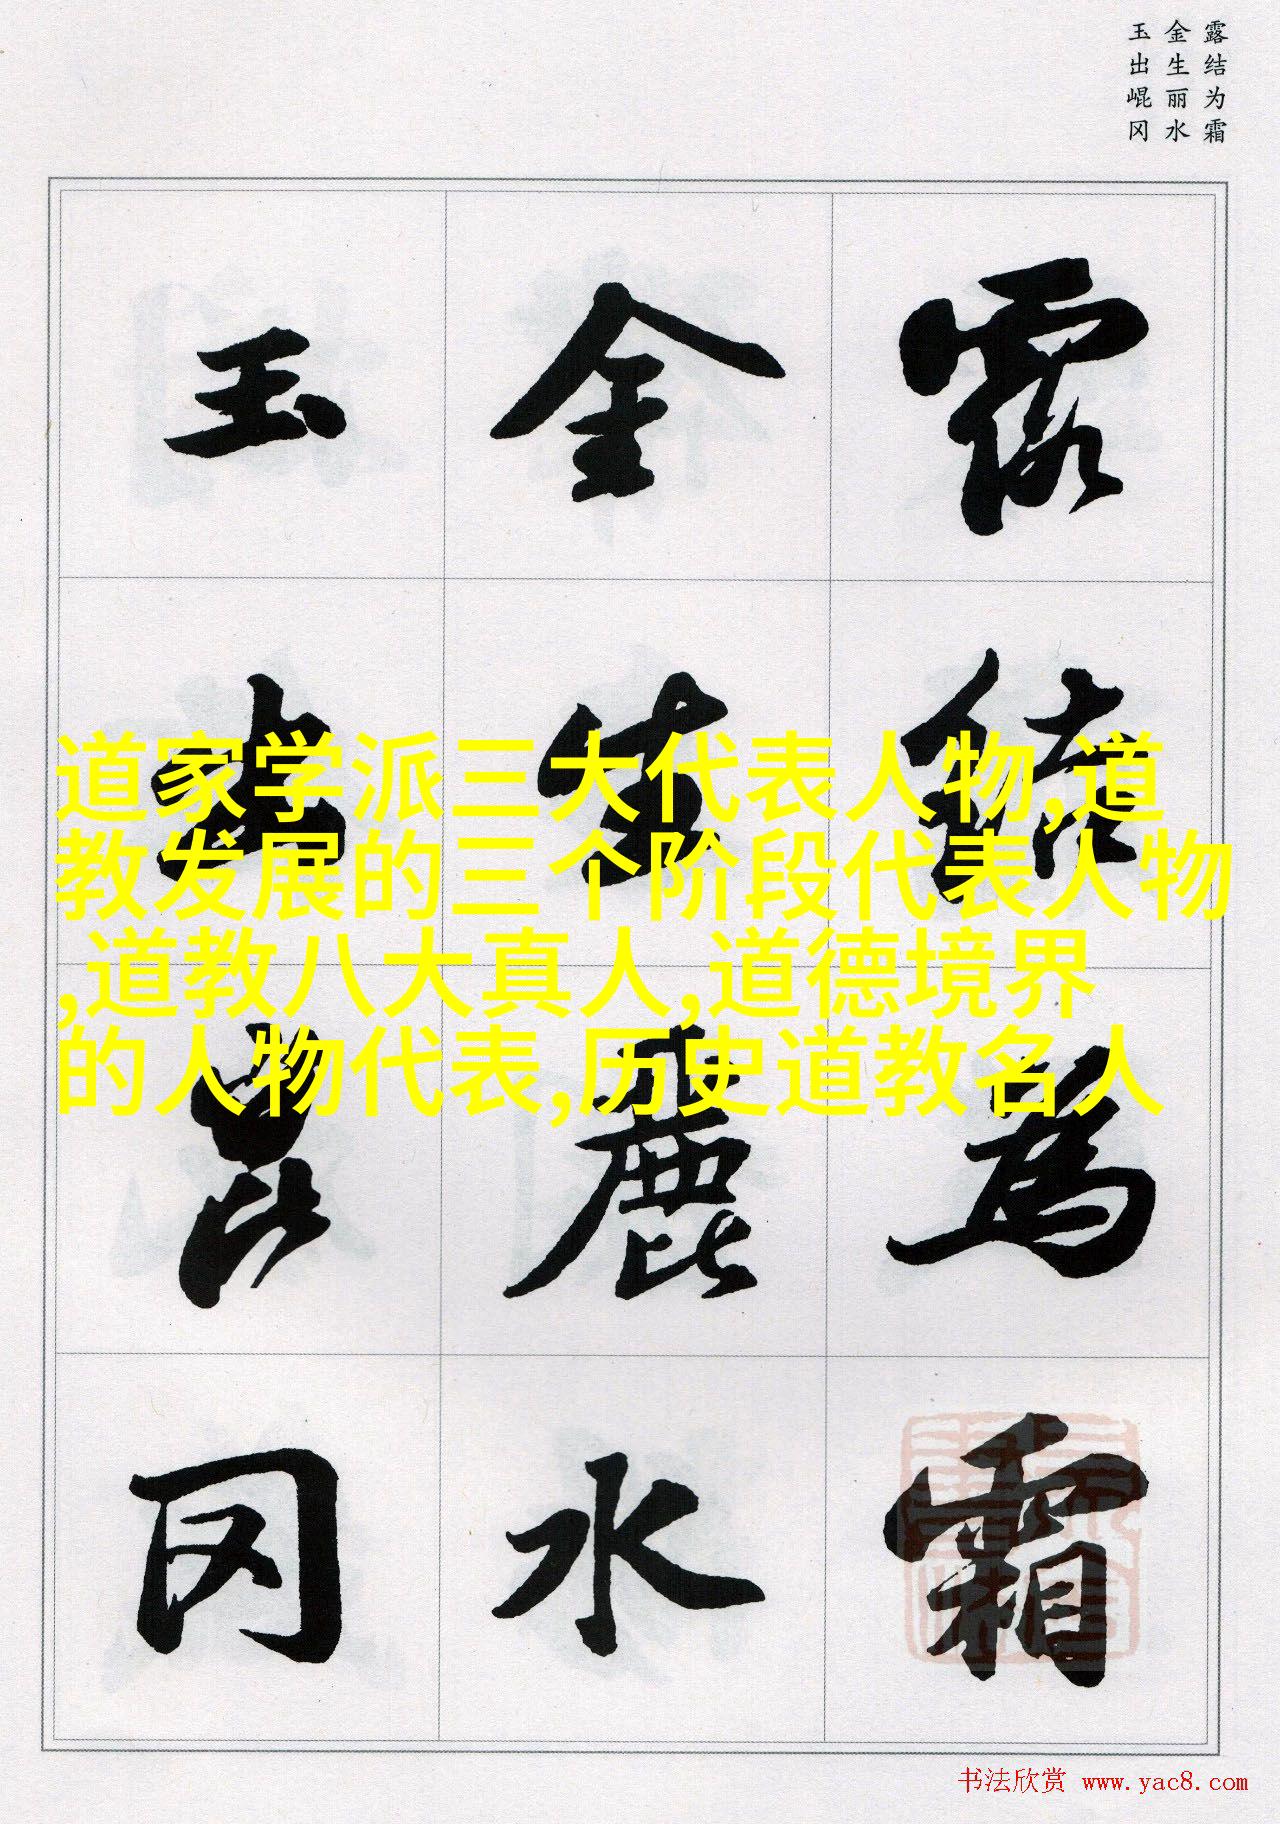 露结为霜
金生丽水
玉出崐冈
露結為霜
金生麗水
玉出崑冈
道家学派三大代表人物,道
教发展的三个阶段代表人物
,道教八大真人,道德境界
的人物代表,历史道教名人
书法欣赏 www.yac8.com